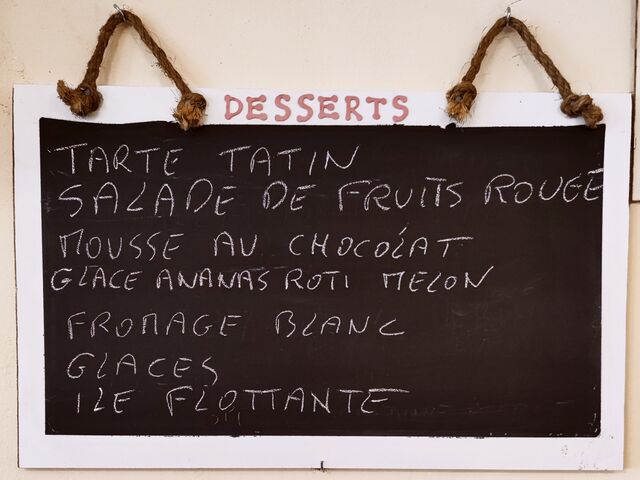 DESSERTS
TARTE TATIN
SALADE DE FRUITS ROUGE
MOUSSE AU CHOCOLAT
GLACE ANANAS ROTI MELON
FROMAGE BLANC
GLACES
ILE FLOTTANTE